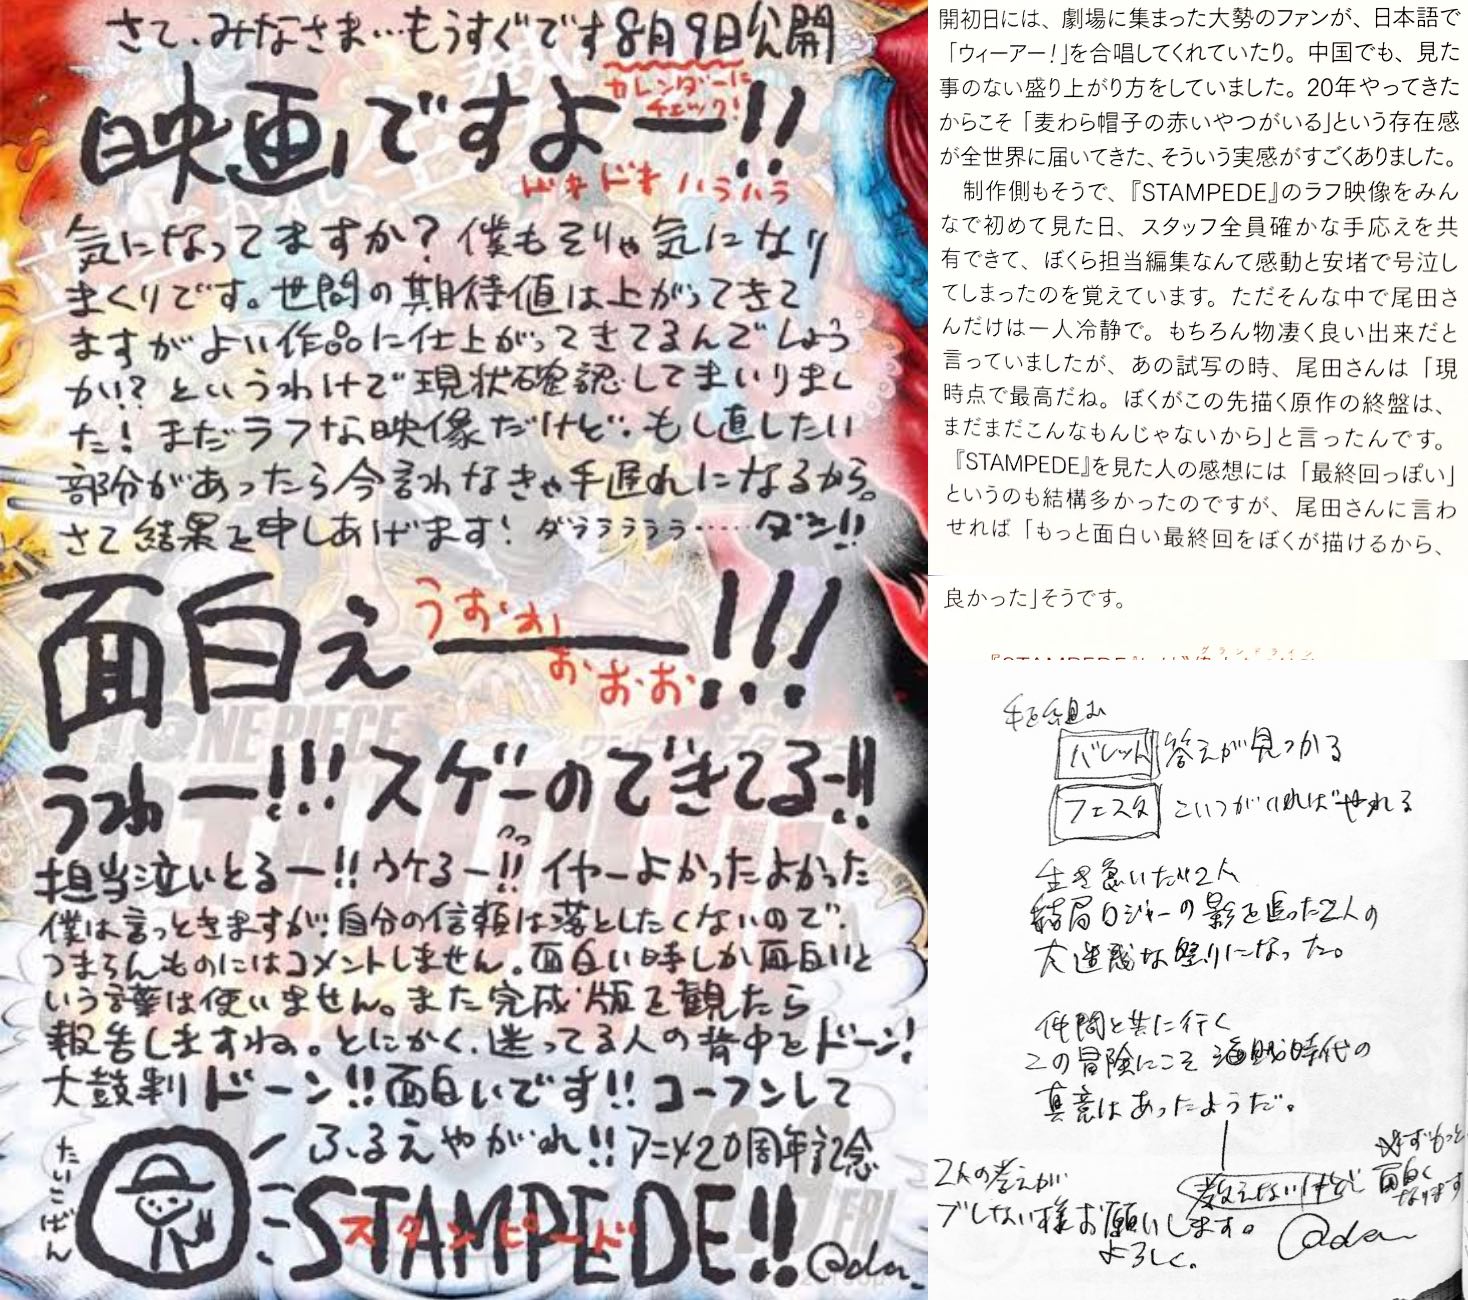 さて、みなさま…もうすぐです8月9日公開
カレンダーに
チェック!
映画ですよー!!
ドキドキハラハラ
気になってますか?僕もそりゃ気になり
まくりです。世間の期待値は上がってきて
ますがよい作品に仕上がってきてるんでしょう
かい?というわけで現状確認してまいりまし
た!まだラフな映像だけど。もし直したい
部分があったら今言わなきゃ手遅れになるから。
さて結果を申しあげます!ダララララララ……ダン!!
面白えー!!!
うおおおおお
うわー!!!スゲーのできてるー!!
担当泣いとるー!!ウケるー!!イヤーよかったよかった
僕は言っときますが、自分の信頼は落としたくないので、
つまらんものにはコメントしません。面白い時しか面白いと
いう言葉は使いません。また完成版を観たら
報告しますね。とにかく、迷ってる人の背中をドーン!
太鼓判ドーン!!面白いです!!コーフンして
ふるえやがれ!!アニメ20周年記念
たいこばん
STAMPEDE!!
スタンピード
開初日には、劇場に集まった大勢のファンが、日本語で
「ウィーアー!」を合唱してくれていたり。中国でも、見た
事のない盛り上がり方をしていました。20年やってきた
からこそ「麦わら帽子の赤いやつがいる」という存在感
が全世界に届いてきた、そういう実感がすごくありました。
制作側もそうで、『STAMPEDE』のラフ映像をみん
なで初めて見た日、スタッフ全員確かな手応えを共
有できて、ぼくら担当編集なんて感動と安堵で号泣し
てしまったのを覚えています。ただそんな中で尾田さ
んだけは一人冷静で。もちろん物凄く良い出来だと
言っていましたが、あの試写の時、尾田さんは「現
時点で最高だね。ぼくがこの先描く原作の終盤は、
まだまだこんなもんじゃないから」と言ったんです。
『STAMPEDE』を見た人の感想には「最終回っぽい」
というのも結構多かったのですが、尾田さんに言わ
せれば「もっと面白い最終回をぼくが描けるから、
良かった」そうです。
手を組む
バレット 答えが見つかる
フェスタ こいつがいればやれる
生き急いだ2人
結局ロジャーの影を追った2人の
大迷惑な祭りになった。
仲間と共に行く
この冒険にこそ海賊時代の
真意はあったようだ。
教えないけど
2人の考えが
ブレない様お願いします。
よろしく。
必ずもっと
面白く
なります